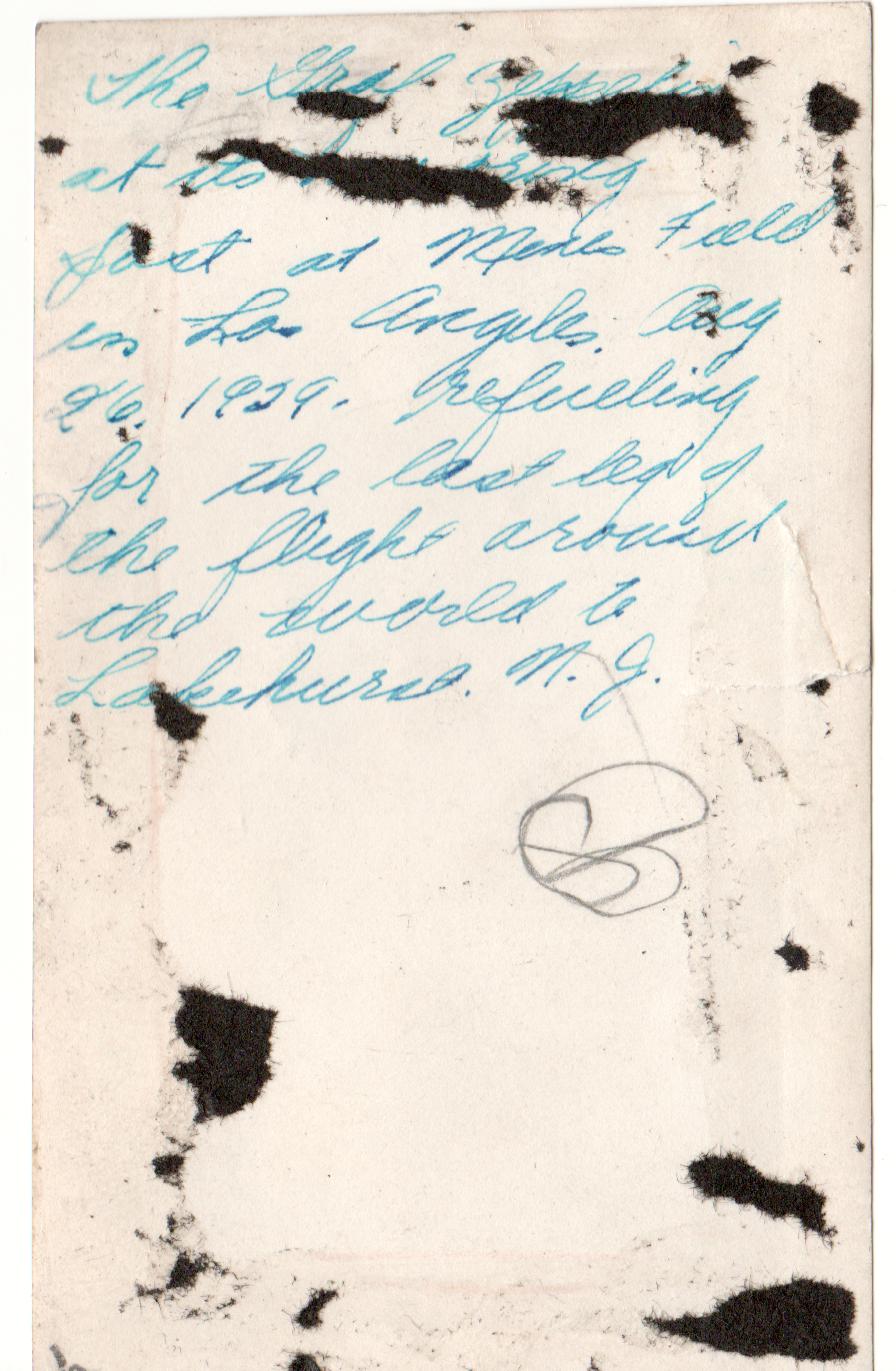 The Graf Zeppelin
at its
post at Mines Field
in Los Angeles. Aug
26. 1929. Refueling
for the last leg of
the flight around
the world to
Lakehurst. N. J.